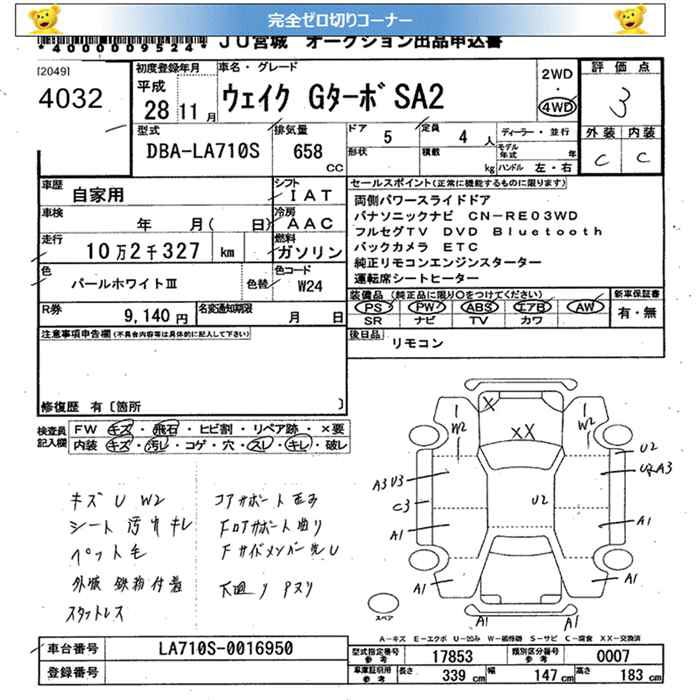 完全ゼロ切りコーナー
*4000009524* JU宮城 オークション出品申込書
[2049]
4032
初度登録年月
平成
28 11月
車名・グレード
ウェイク Gターボ SA2
2WD
・
4WD
評価点
3
外装 内装
C C
型式
DBA-LA710S
排気量
658
CC
ドア 5
定員 4 人
形状
積載 kg
ディーラー・並行
モデル年式 年
ハンドル 左・右
車歴 自家用
シフト IAT
車検 年 月( 日)
冷房 AAC
走行 10万2千327 km
燃料 ガソリン
色 パールホワイトIII 色替
色コード W24
R券 9,140円
名変通知期限 月 日
セールスポイント(正常に機能するものに限ります)
両側パワースライドドア
パナソニックナビ CN-RE03WD
フルセグTV DVD Bluetooth
バックカメラ ETC
純正リモコンエンジンスターター
運転席シートヒーター
装備品(純正品に限り〇をつけてください)
PS PW ABS エアB AW
SR ナビ TV カワ
新車保証書
有・無
後日品 リモコン
注意事項申告欄(不具合内容等は具体的に記入して下さい)
修復歴 有〔箇所 〕
検査員記入欄
FW キズ・飛石・ヒビ割・リペア跡・×要
内装 キズ・汚レ・コゲ・穴・スレ・キレ・破レ
キズ U W2
シート 汚れ キレ
ペット毛
外板 鉄粉付着
スタットレス
コアサポート
Fロアサポート曲り
Fサイドメンバー先U
下廻り Pヌリ
X
XX
W2
W2
A3 U3
C3
A1
A1
U2
U2
U2 A3
A1
A1
A1 A1
スペア
A-キズ E-エクボ U-凹み W-補修跡 S-サビ C-腐食 XX-交換済
車台番号 LA710S-0016950
登録番号
型式指定番号 参考 17853
類別区分番号 参考 0007
車庫証明用 参考 長さ 339 cm 幅 147 cm 高さ 183 cm